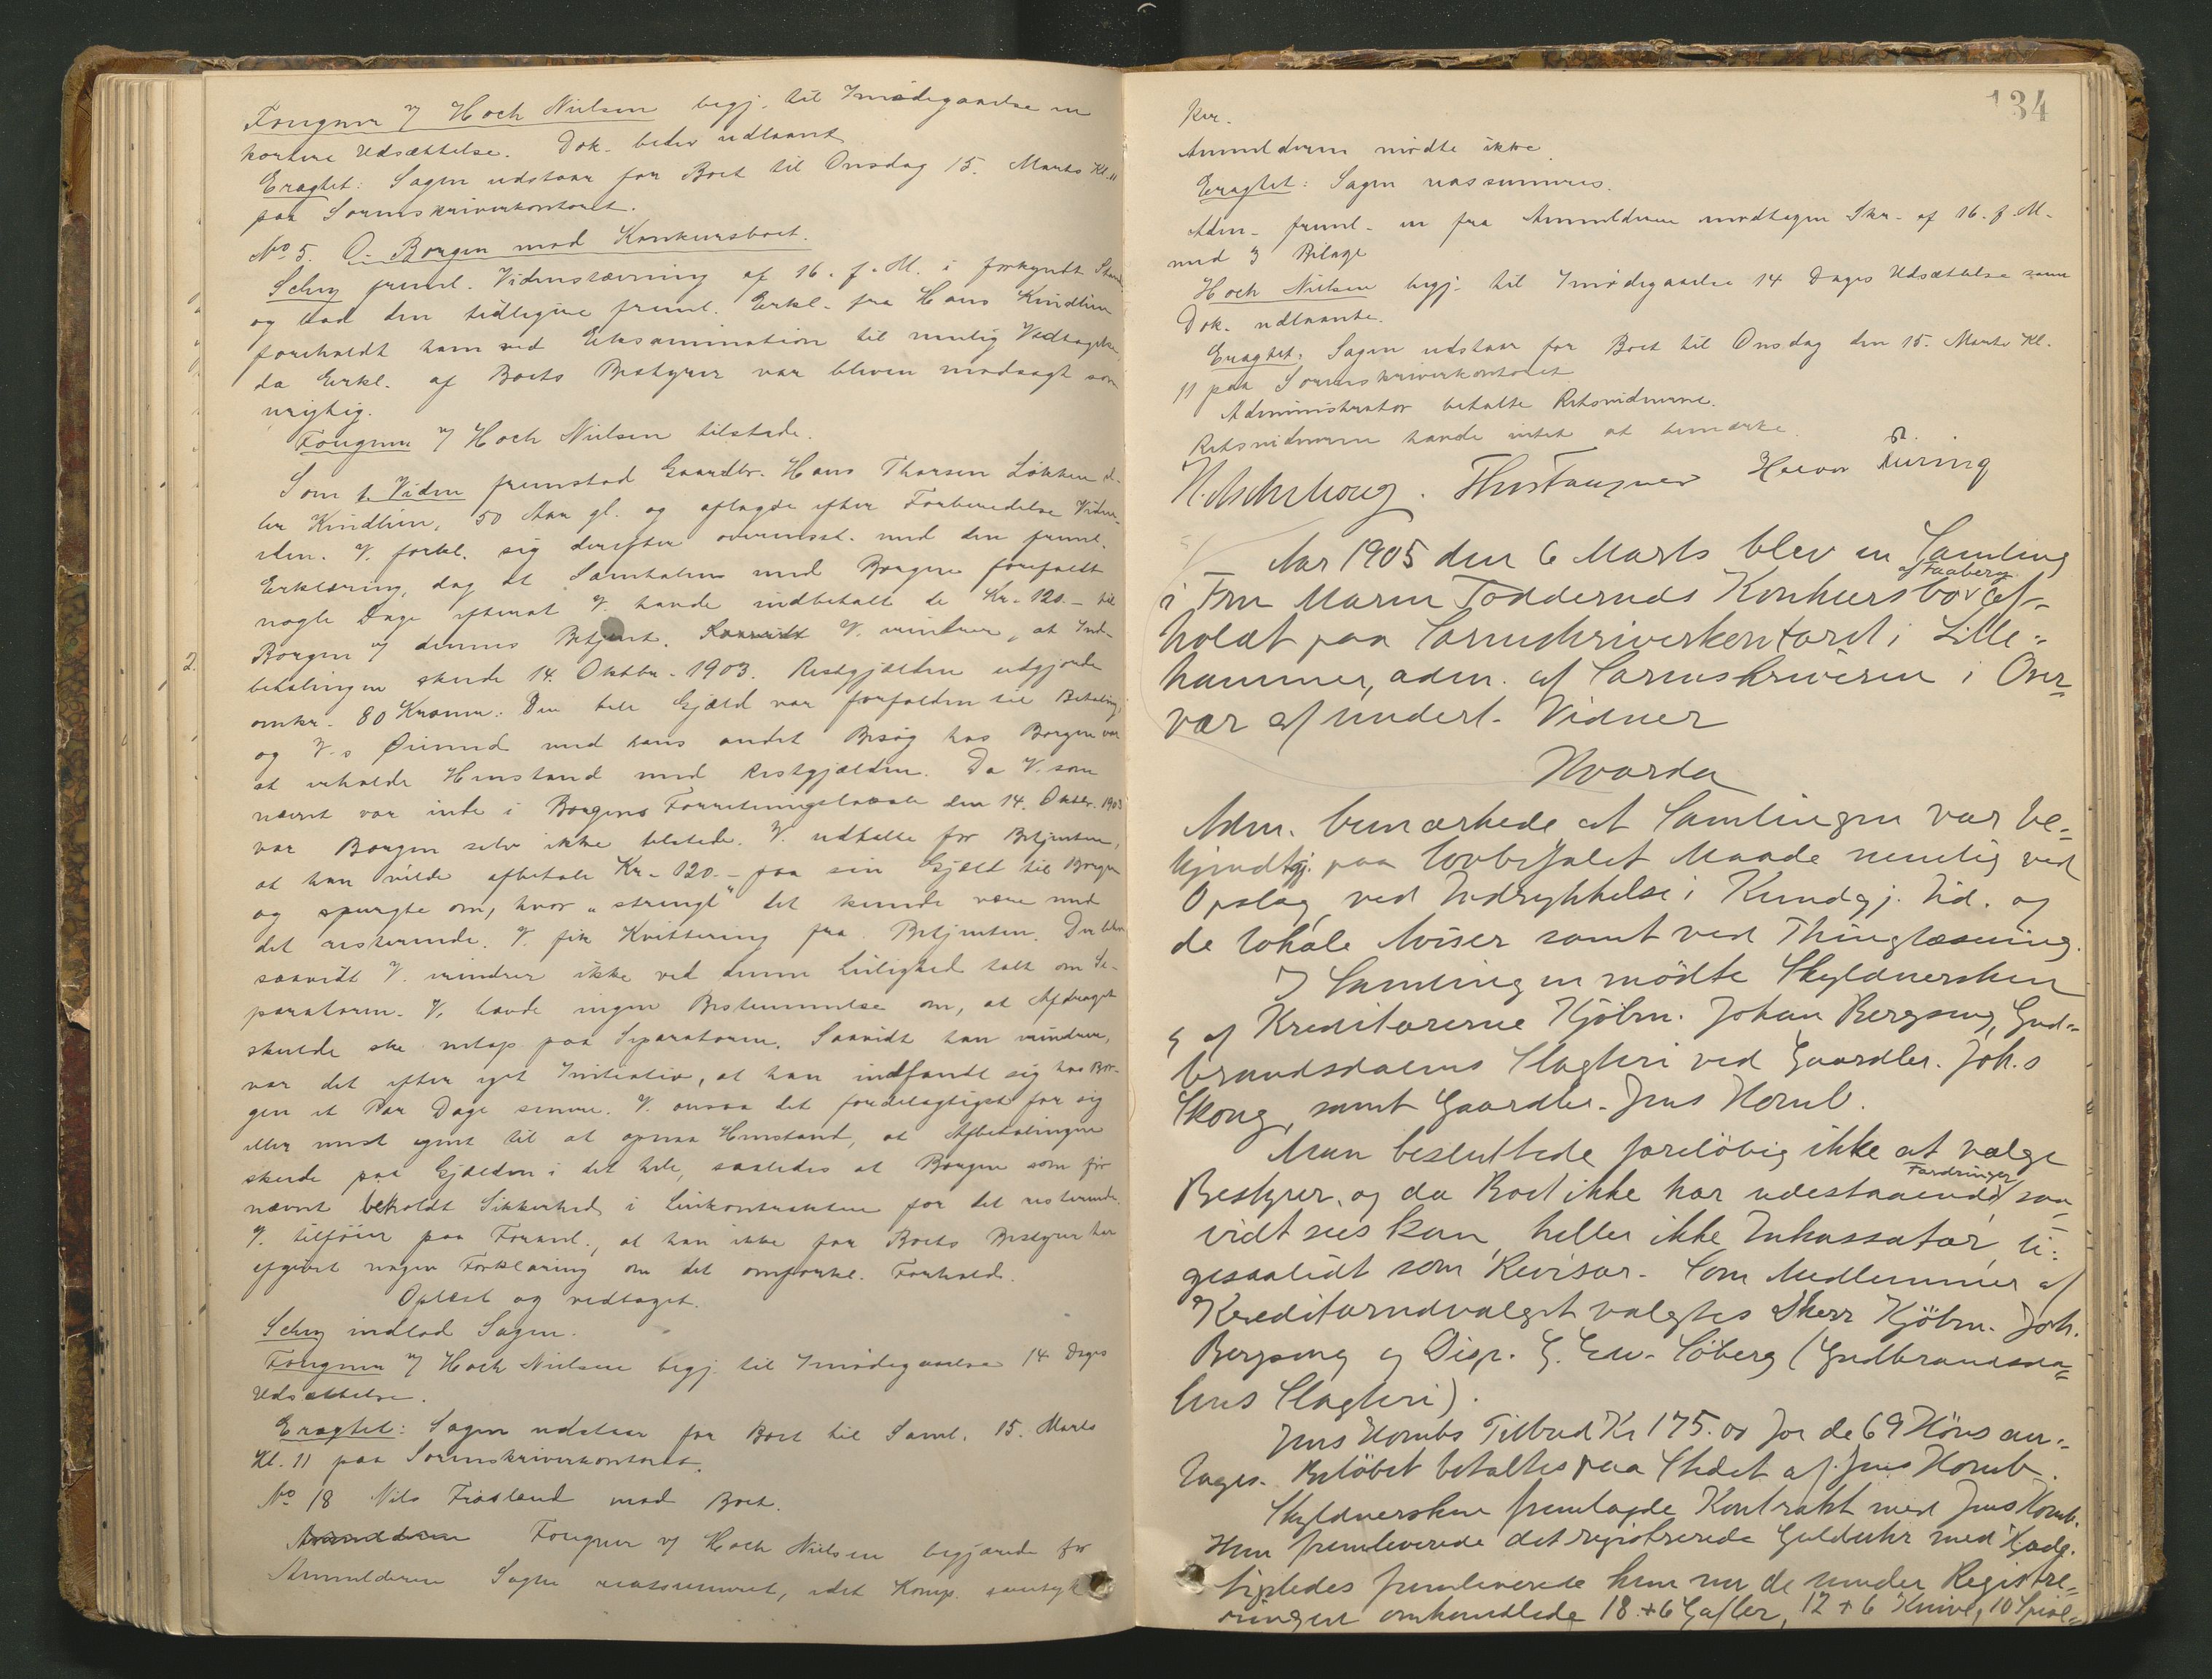 Fougner v/ Hoch Nielsen begj. til Imødegaaelse en
kortere Udsættelse. Dok. bedes udlaant
Eragtet: Sagen udstaar for Boet til Onsdag 15. Marts Kl. 11
paa Sorenskriverkontoret.
No 5. O. Borgen mod Konkursboet.
Schey freml. Vidnestævning af 16. f. M. i forkyndt Stand
og bad den tidligere freml. Erkl. fra Hans Kindlien
foreholdt ham ved Eksamination til mulig Vedtagelse,
da Erkl. af Boets Bestyrer var bleven modsagt som
urigtig.
Fougner v/ Hoch Nielsen tilstede.
Som 1. Vidne fremstod Gaardbr. Hans Thorsen Løkken el-
ler Kindlien, 50 Aar gl. og aflagde efter Forberedelse Vidne-
eden. V. forkl. sig derefter overensst. med den freml.
Erklæring, dog at Samtalen med Borgen forefaldt
nogle Dage efterat V. havde indbetalt de Kr. 120.- til
Borgen v/ dennes Betjent. V. mindes, at Ind-
betalingen skede 14. Oktbr. 1903. Restgjælden udgjorde
omkr. 80 Kroner. Den hele Gjæld var forfalden til Betaling,
og V.s Øiemed med hans andet Besøg hos Borgen var
at erholde Henstand med Restgjælden. Da V. som
nævnt var inde i Borgens Forretningslokale den 14. Oktbr. 1903
var Borgen selv ikke tilstede. V. udtalte for Betjenten,
at han vilde afbetale Kr. 120.- paa sin Gjæld til Borgen
og spurgte om, hvor "strengt" det kunde være med
det resterende. V. fik Kvittering fra Betjenten. Der blev
saavidt V. mindes ikke ved denne Leilighed talt om Se-
paratoren. V. havde ingen Bestemmelse om, at Afdraget
skulde ske netop paa Separatoren. Saavidt han mindes,
var det efter eget Initiativ, at han indfandt sig hos Bor-
gen et Par Dage senere. V. ansaa det fordelagtigst for sig
eller mest egnet til at opnaa Henstand, at Afbetalingen
skede paa Gjælden i det hele, saaledes at Borgen som før
nævnt beholdt Sikkerhed i Leiekontrakten for det resterende.
V. tilføier paa Foranl., at han ikke for Boets Bestyrer har
afgivet nogen Forklaring om det omforkl. Forhold.
Oplæst og vedtaget.
Schey indlod Sagen.
Fougner v/ Hoch Nielsen begj. til Imødegaaelse 14 Dages
Udsættelse.
Eragtet: Sagen udstaar for Boet til Saml. 15. Marts
Kl. 11 paa Sorenskriverkontoret.
No 18 Nils Frøsland mod Boet.
Fougner v/ Hoch Nielsen begjærede for
Anmelderen Sagen reassumeret, idet Komp. samtyk
ker.
Anmelderen mødte ikke
Eragtet: Sagen reassumeres.
Adm. freml. en fra Anmelderen modtagen Skr. af 16. f. M.
med 3 Bilage
Hoch Nielsen begj. til Imødegaaelse 14 Dages Udsættelse samt
Dok. udlaante.
Eragtet: Sagen udstaar for Boet til Onsdag den 15. Marts Kl.
11 paa Sorenskriverkontoret
Administrator betalte Retsvidnerne.
Retsvidnerne havde intet at bemærke.
134
Aar 1905 den 6 Marts blev en Samling
i Fru Maren Todderuds Konkursbo af Faaberg af-
holdt paa Sorenskriverkontoret i Lille-
hammer, adm. af Sorenskriveren i Over-
vær af undert. Vidner
Hvorda
Adm. bemærkede at Samlingen var be-
kjendtgj. paa lovbefalet Maade nemlig ved
Opslag, ved Indrykkelse i Kundgj. tid. og
de lokale Aviser samt ved Thinglæsning.
I Samlingen mødte Skyldnersken
og af Kreditorerne Kjøbm. Johan Bergseng, Gud-
brandsdalens Slagteri ved Gaardbr. Joh.s
Skoug, samt Gaardbr. Jens Homb.
Man besluttede foreløbig ikke at vælge
Bestyrer, og da Boet ikke har udestaaende Fordringer saa
vidt sees kan, heller ikke Inkassator, li-
gesaalidt som Revisor. Som Medlemmer af
Kreditorudvalget valgtes Herr Kjøbm. Joh.
Bergseng og Disp. G. Edv. Søberg (Gudbrandsda-
lens Slagteri).
Jens Hombs Tilbud Kr 175.00 for de 69 Høns an-
tages. Beløbet betaltes paa Stedet af Jens Homb.
Skyldnersken fremlagde Kontrakt med Jens Homb.
Hun fremleverede det registrerede Gulduhr med Kjæde.
Ligeledes fremleverede hun nu de under Registre-
ringen omhandlede 18 + 6 Gafler, 12 + 6 Knive, 10 Spise-